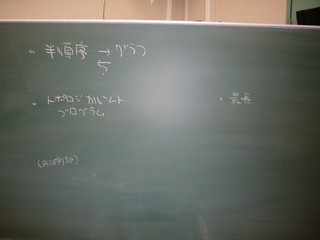 半順序 → グラフ
トポロジカルソート
プログラム
最長